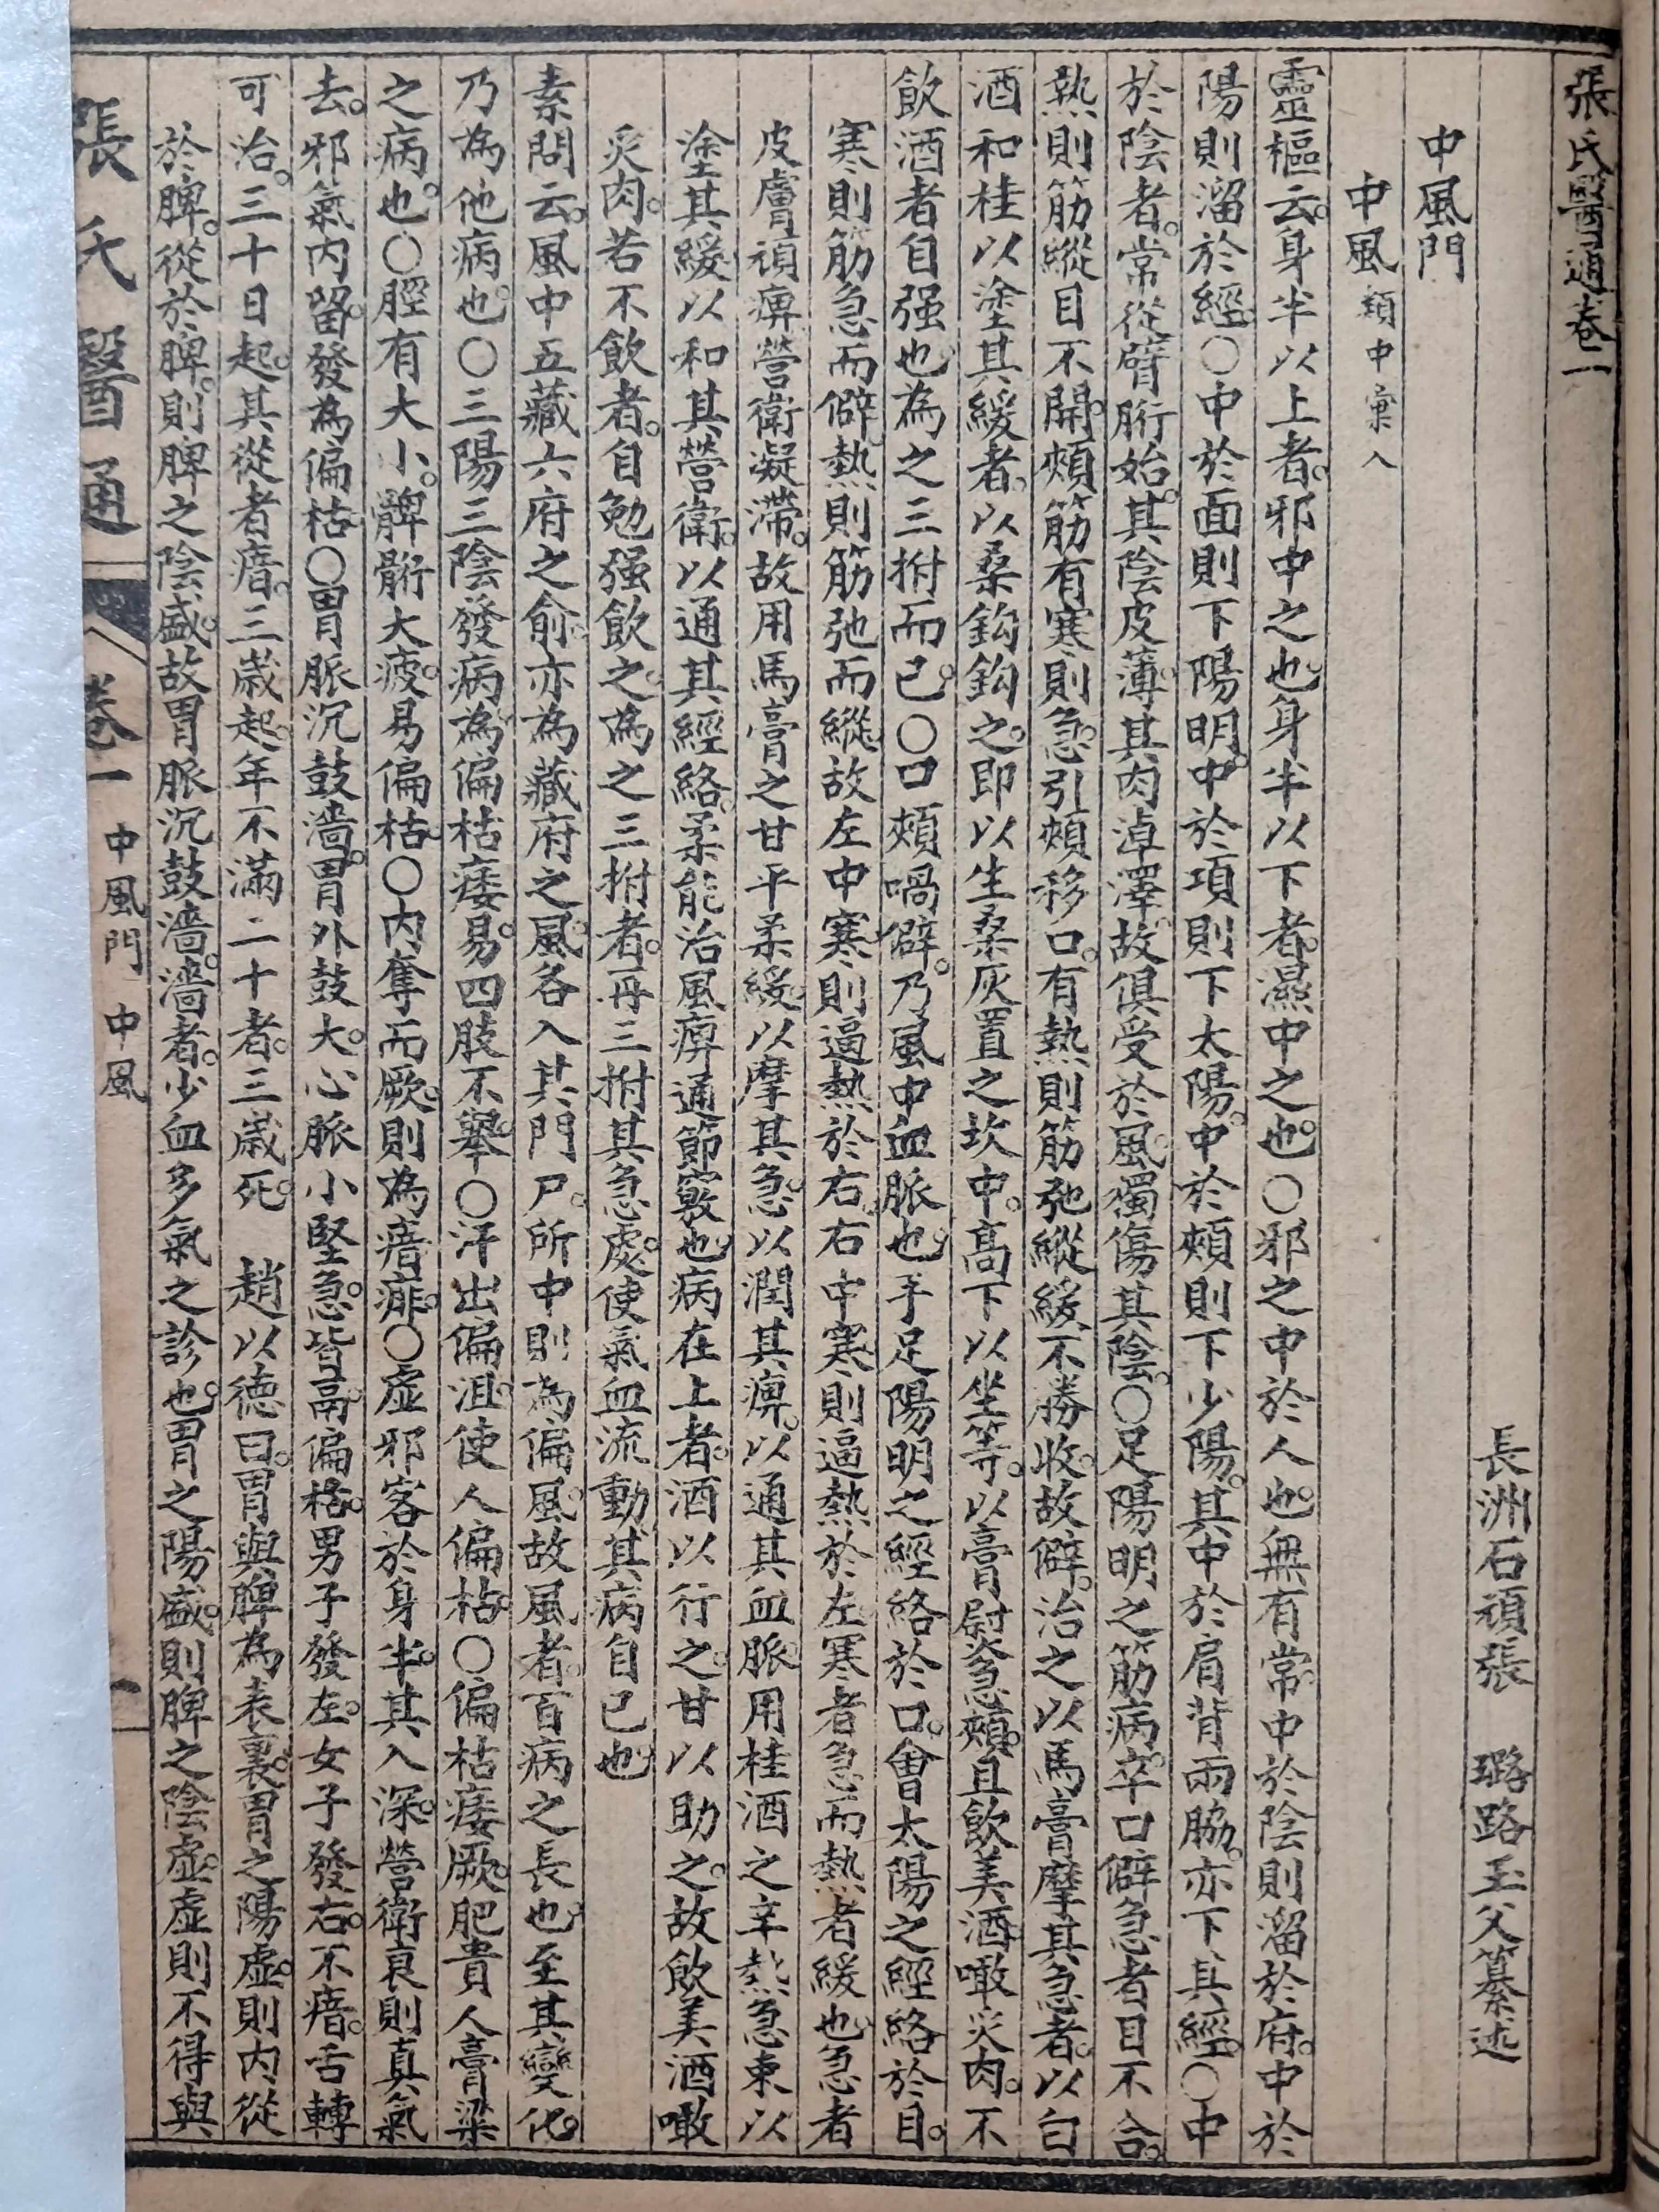 張氏醫通卷一
長洲石頑張　璐路玉父纂述
中風門
中風類中彙入
靈樞云。身半以上者。邪中之也。身半以下者。濕中之也。○邪之中於人也。無有常。中於陰則溜於府。中於
陽則溜於經。○中於面則下陽明。中於項則下太陽。中於頰則下少陽。其中於肩背兩脇。亦下其經。○中
於陰者。常從臂胻始。其陰皮薄。其肉淖澤。故俱受於風。獨傷其陰。○足陽明之筋病。卒口僻急者目不合。
熱則筋縱目不開。頰筋有寒。則急。引頰移口。有熱則筋弛縱緩。不勝收。故僻。治之以馬膏摩其急者。以白
酒和桂以塗其緩者。以桑鈎鈎之。即以生桑灰置之坎中。高下以坐等。以膏尉急頰。且飲美酒噉炙肉。不
飲酒者自强也。為之三拊而已。○口頰喎僻。乃風中血脈也。手足陽明之經絡於口。會太陽之經絡於目。
寒則筋急而僻。熱則筋弛而縱。故左中寒則逼熱於右。右中寒則逼熱於左。寒者急而熱者緩也。急者
皮膚頑痹。營衛凝滯。故用馬膏之甘平柔緩。以摩其急。以潤其痹。以通其血脈。用桂酒之辛熱急束。以
塗其緩。以和其營衛。以通其經絡。桑能治風痹。通節竅也。病在上者。酒以行之。甘以助之。故飲美酒噉
炙肉。若不飲者。自勉强飲之。為之三拊者。再三拊其急處。使氣血流動。其病自已也。
素問云。風中五藏六府之俞。亦為藏府之風。各入其門戶。所中則為偏風。故風者。百病之長也。至其變化。
乃為他病也。○三陽三陰發病。為偏枯痿易。四肢不舉。○汗出偏沮。使人偏枯。○偏枯痿厥。肥貴人膏梁
之病也。○脛有大小。髀胻大疲。易偏枯。○內奪而厥。則為瘖痱。○虛邪客於身半。其入深。營衛衰則真氣
去。邪氣內留。發為偏枯。○胃脈沉鼓濇。胃外鼓大。心脈小堅急。皆鬲偏格。男子發左。女子發右。不瘖。舌轉
可治。三十日起。其從者瘖。三歲起。年不滿二十者。三歲死。　趙以德曰。胃與脾為表裏。胃之陽虛。則內從
於脾。從於脾。則脾之陰盛。故胃脈沉鼓濇。濇者。少血多氣之診也。胃之陽盛。則脾之陰虛。虛則不得與
張氏醫通　卷一　中風門　中風　一